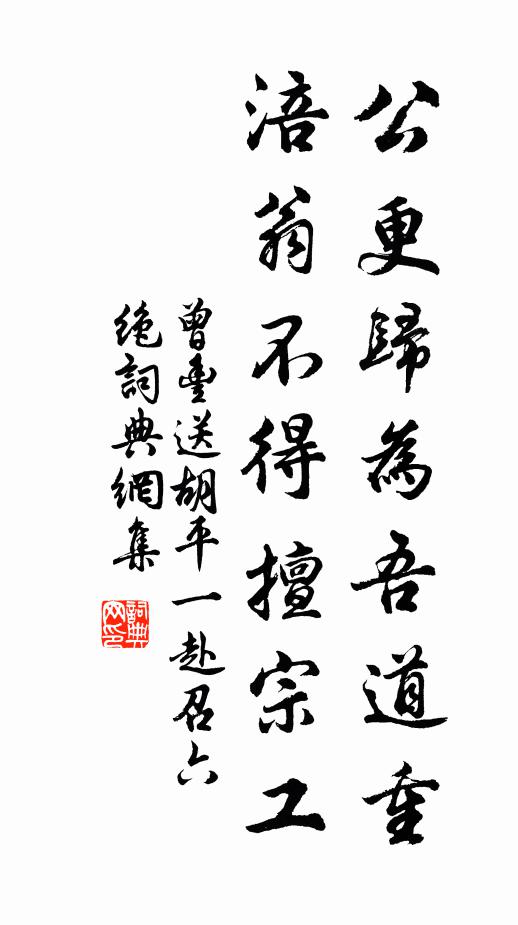 公更歸為吾道重
涪翁不得擅宗工
曾豐送胡平一赴召六
絕詞典網集
詞典网印